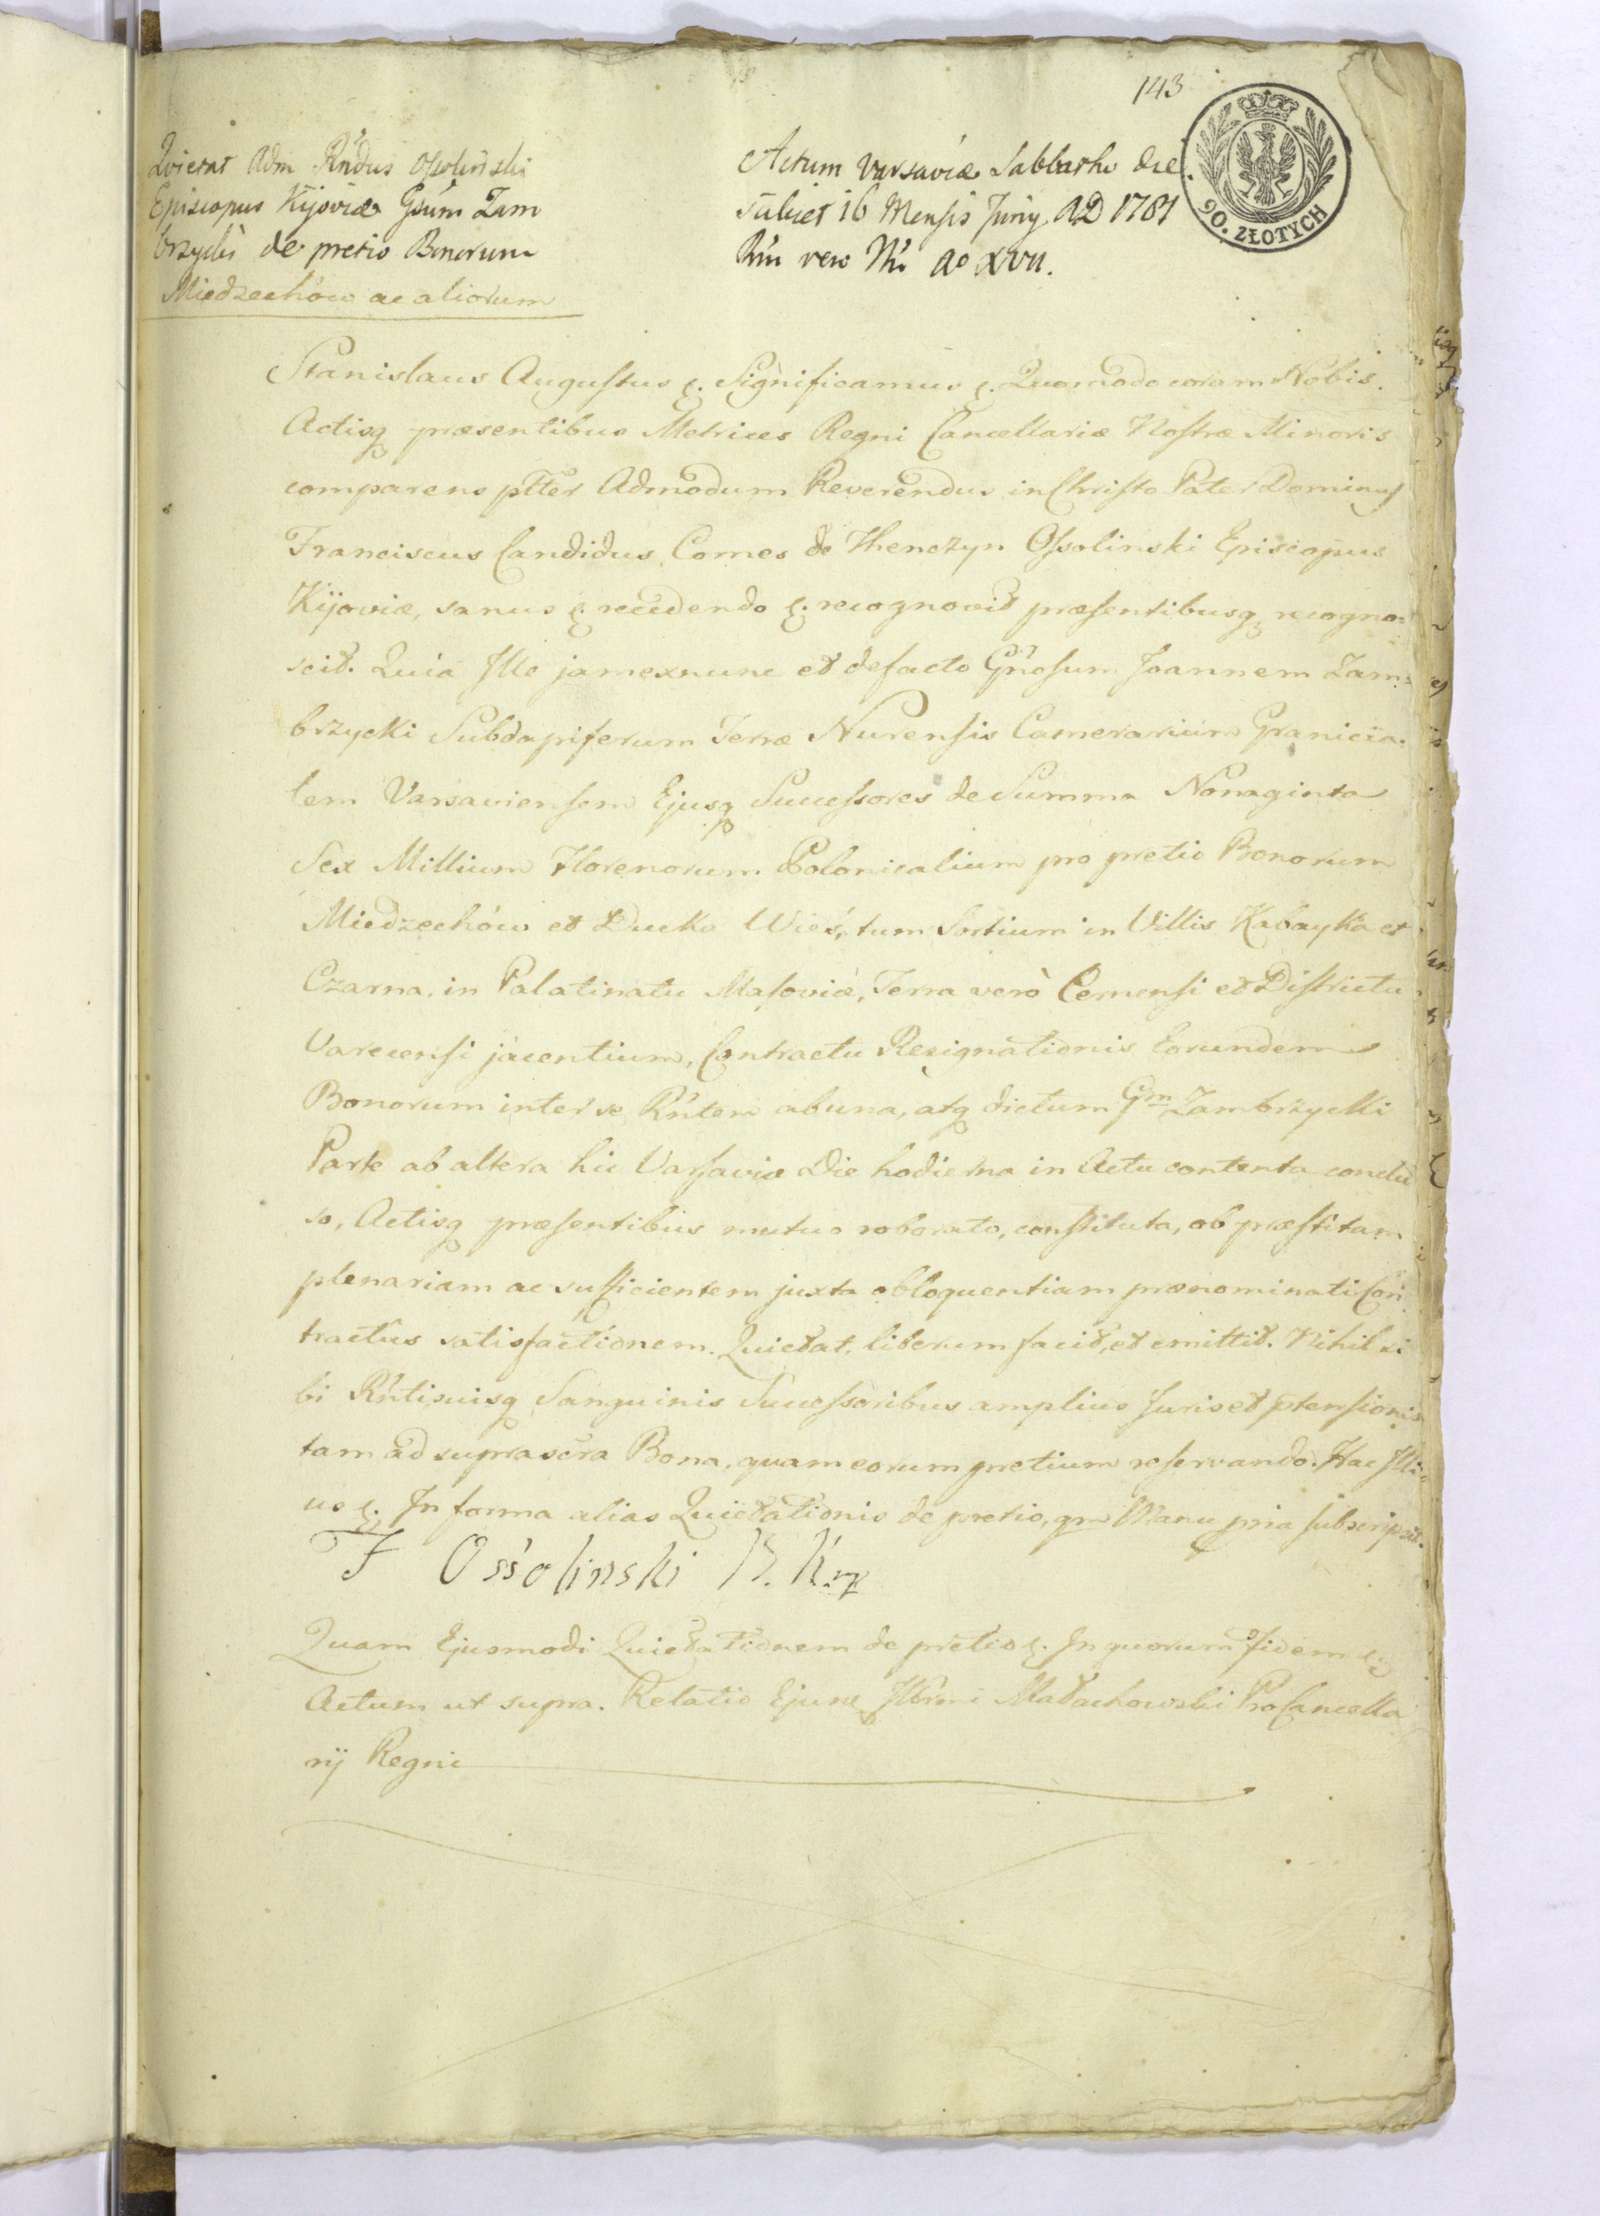 143
90. ZŁOTYCH
Qvietat Adm Rńdus Ossoliński
Episcopus Kijoviæ Gsum Zam
brzycki de pretio Bonorum
Miedzechów ac aliorum
Actum Varsaviæ Sabbatho die
16 Mensis Junij AD 1781
Rńi vero Ńri Ao XVII.
Stanislaus Augustus &. Significamus &. Quomodo coram Nobis.
Actisq præsentibus Metrices Regni Cancellariæ Nostræ Minoris
comparens pltter Admodum Reverendus in Christo Pater Dominus
Franciscus Candidus Comes de Thenczyn Ossolinski Episcopus
Kijoviæ, sanus & recedendo &. recognovit præsentibusq recogno=
scit. Quia Ille jam exnunc et defacto Gńosum Joannem Zam=
brzycki Subdapiferum Terræ Nurensis Camerarium Granicia=
lem Varsaviensem Ejusq Successores de Summa Nonaginta
Sex Millium Florenorum Polonicalium pro pretio Bonorum
Miedzechów et Ducka Wieś, tum Sortium in Villis Kabayka et
Czarna, in Palatinatu Masoviæ, Terra verò Cernensi et Districtu
Varecensi jacentium, Contractu Resignationis Eorundem
Bonorum inter se Rńtem ab una, atq dictum Gm Zambrzycki
Parte ab altera hic Varsaviæ Die hodierna in Actu contenta conclu
so, Actisq præsentibus mutuo roborato, constituta, ob præstitam
plenariam ac sufficientem juxta obloquentiam prænominati Con
tractûs satisfactionem. Quietat, liberum facit, et emittit. Nihil si
bi Rńti, suisq Sanguinis Successoribus amplius Juris et ptensionis
tam ad suprascra Bona, quam eorum pretium reservando. Hac Illi=
us &. In forma alias Quietationis de pretio, qm Manu pria subscripsit.
F Ossolinski B. K.
Quam Ejusmodi Quietationem de pretio &. In quorum fidem &
Actum ut supra. Relatio Ejusne Illrmi Małachowski ProCancella
rij Regni